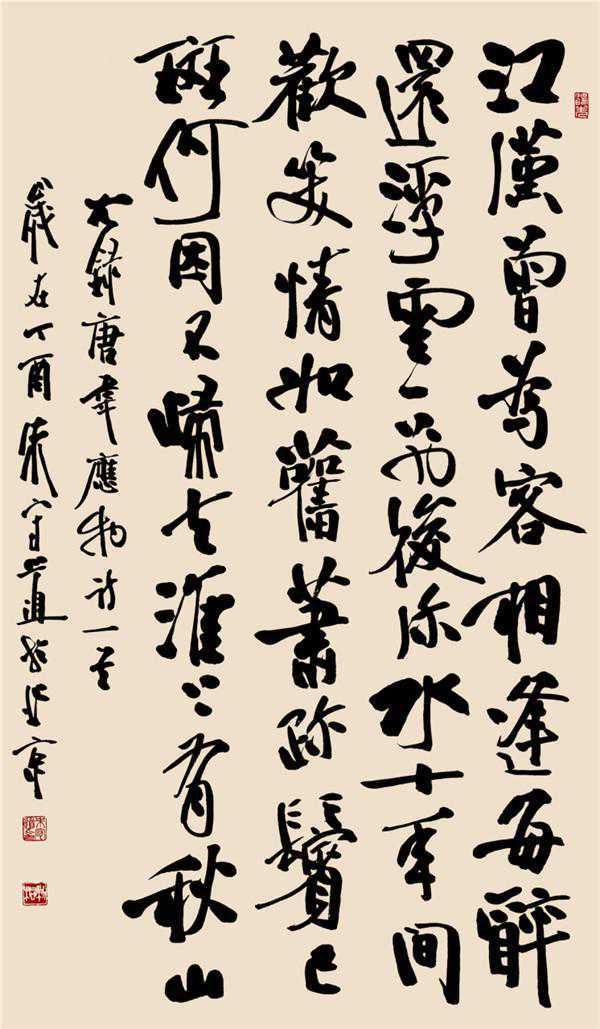 江漢曾為客相逢每醉
還浮雲一別後流水十年間
歡笑情如舊蕭疏鬢已
斑何因不歸去淮上有秋山
右錄唐韋應物詩一首
歲在丁酉朱守道於北京